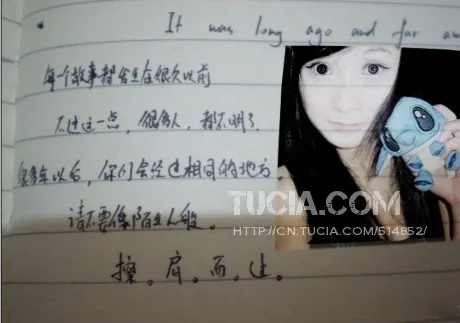 It was long ago and far aw
每个故事都发生在很久以前
不过这一点，很多人，都不明了
很多年以后，你们会经过相同的地方
请不要像陌生人般。
擦。肩。而。过。
TUCIA.COM
HTTP://CN.TUCIA.COM/514852/